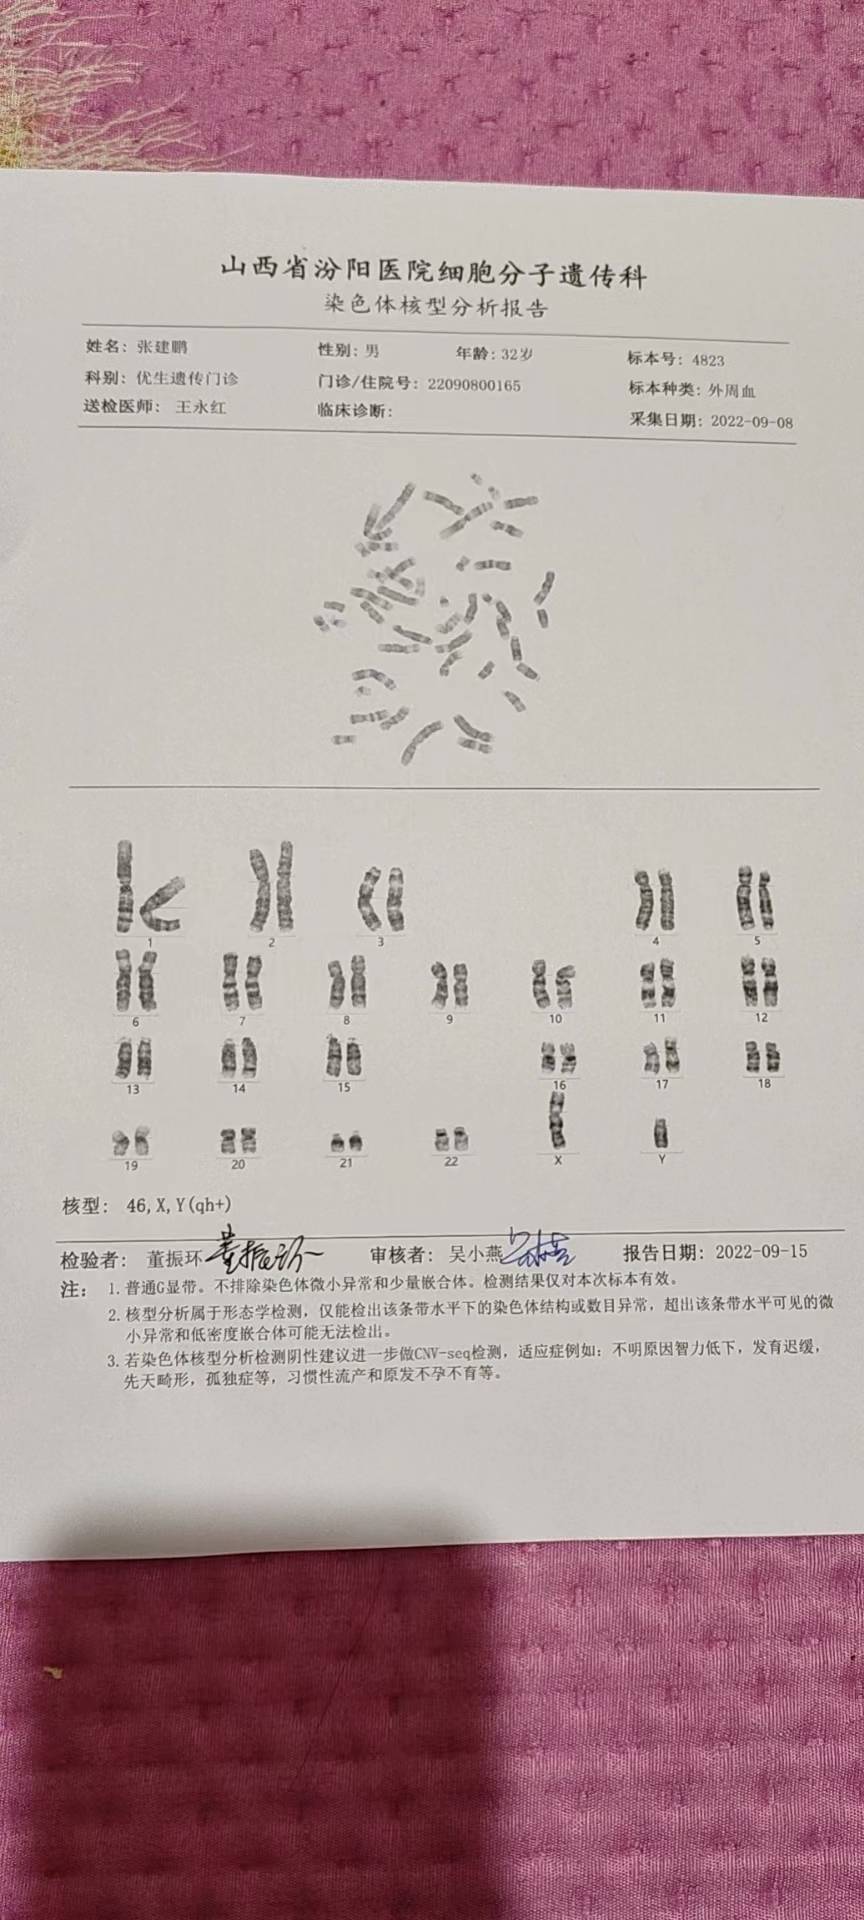 山西省汾阳医院细胞分子遗传科
染色体核型分析报告
姓名：张建鹏 性别：男 年龄：32岁 标本号：4823
科别：优生遗传门诊 门诊/住院号：22090800165 标本种类：外周血
送检医师：王永红 临床诊断： 采集日期：2022-09-08
1 2 3 4 5
6 7 8 9 10 11 12
13 14 15 16 17 18
19 20 21 22 X Y
核型：46,X,Y(qh+)
检验者：董振环 董振环 审核者：吴小燕 报告日期：2022-09-15
注：1.普通G显带。不排除染色体微小异常和少量嵌合体。检测结果仅对本次标本有效。
2.核型分析属于形态学检测，仅能检出该条带水平下的染色体结构或数目异常，超出该条带水平可见的微
小异常和低密度嵌合体可能无法检出。
3.若染色体核型分析检测阴性建议进一步做CNV-seq检测，适应症例如：不明原因智力低下，发育迟缓，
先天畸形，孤独症等，习惯性流产和原发不孕不育等。